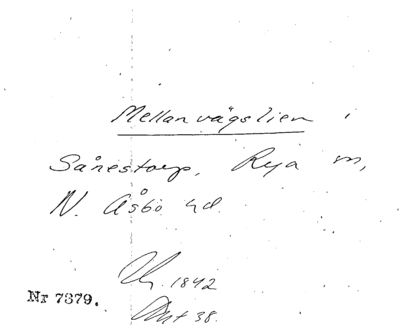 Mellanvägslien i
Sånestorp, Rya sn,
N. Åsbo hd.
1842
Nr 7379.
38.